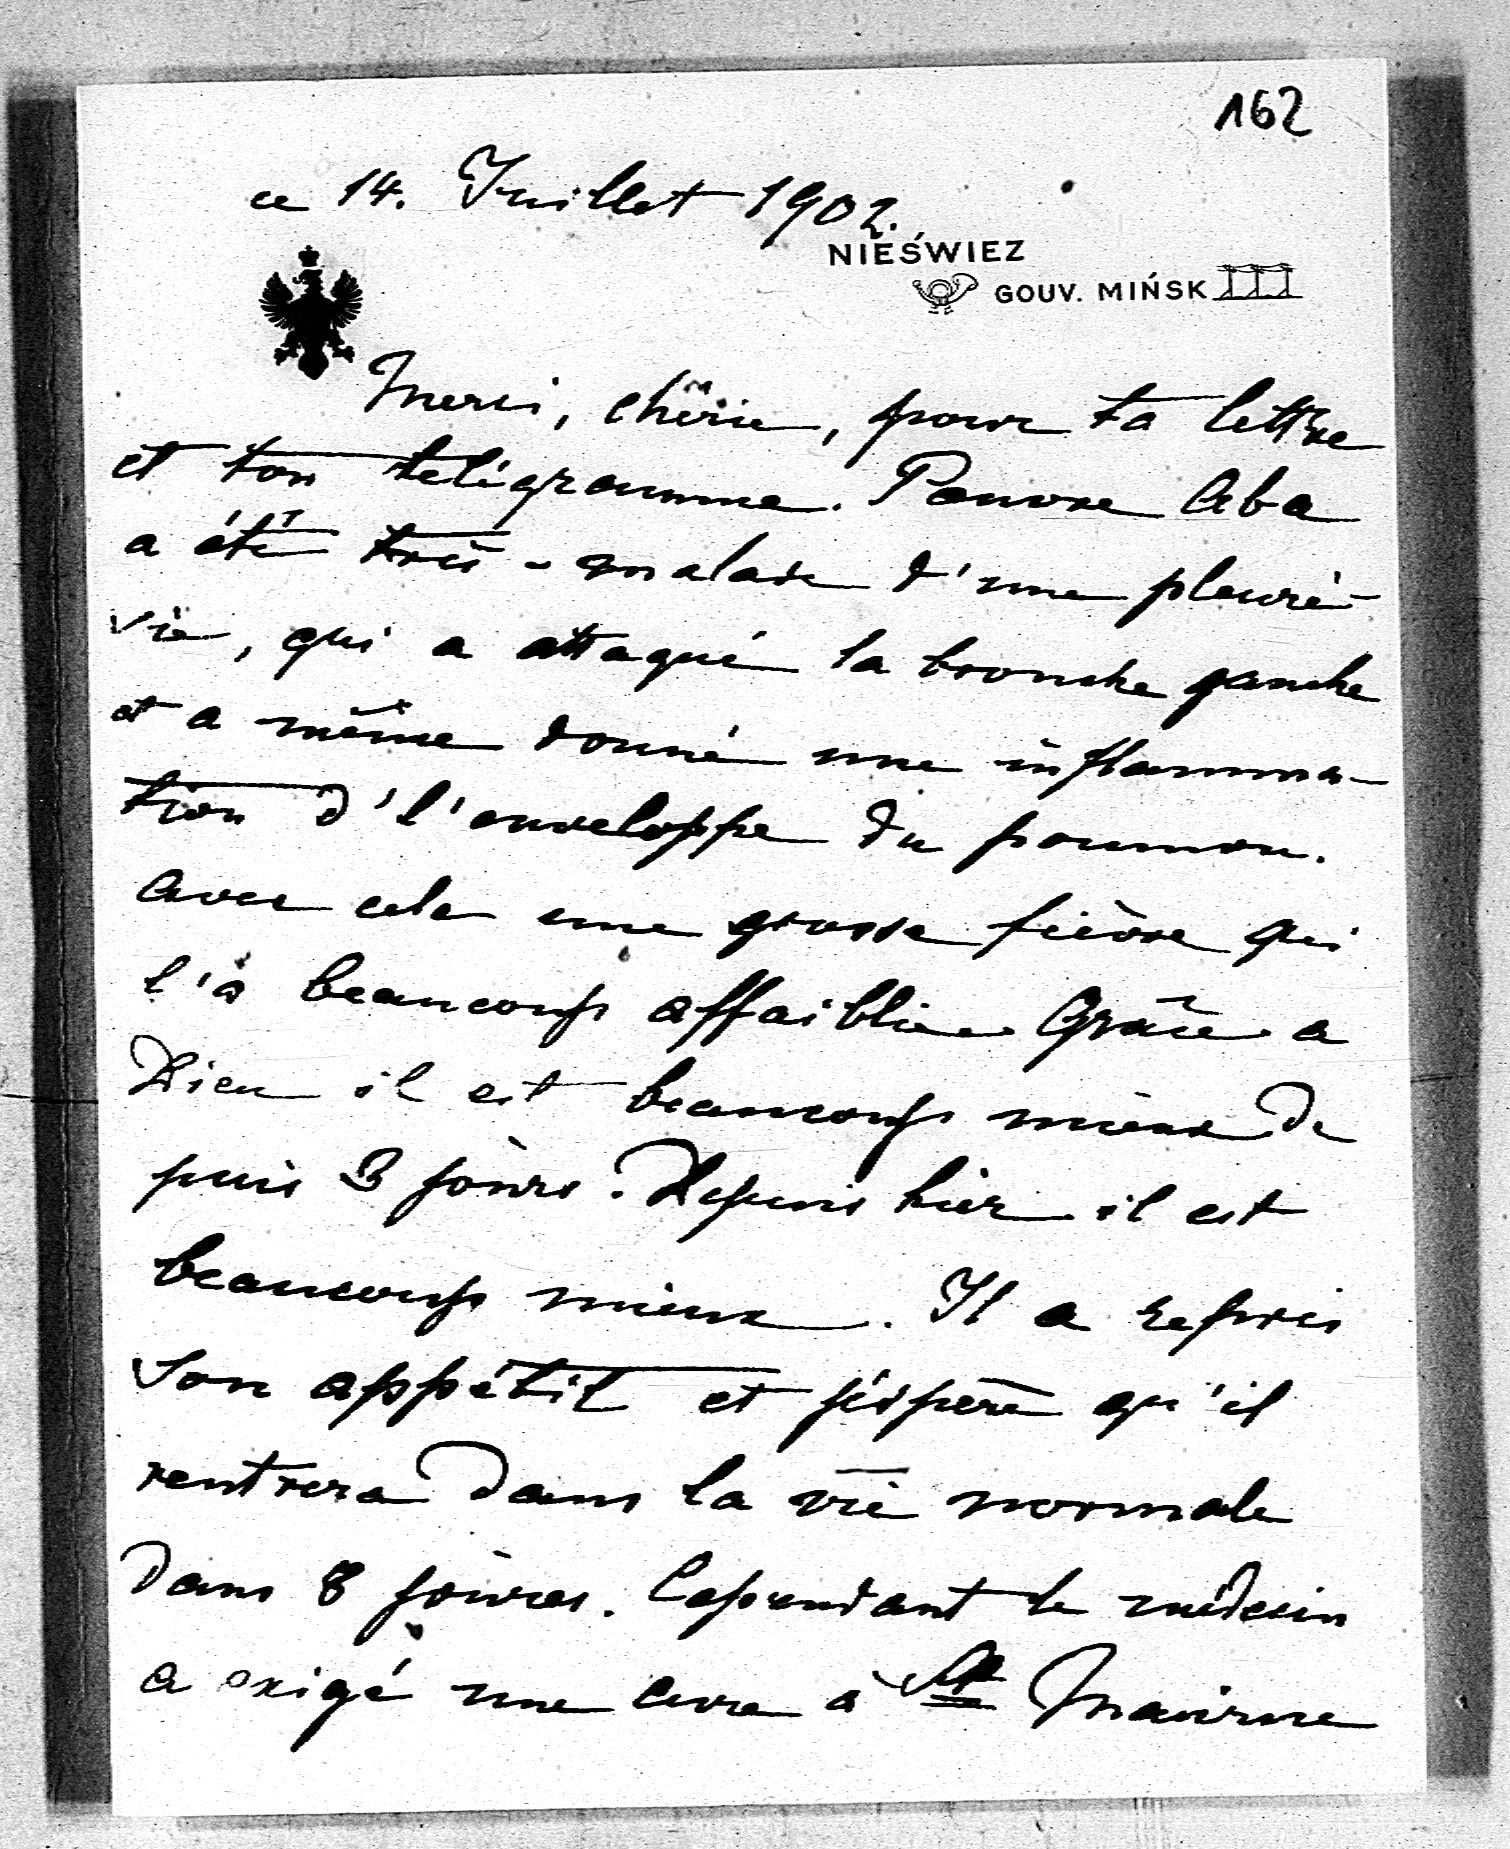 162
ce 14. Juillet 1902.
NIEŚWIEZ
GOUV. MIŃSK
Merci, chérie, pour ta lettre
et ton telégramme. Pauvre Aba
a été très-malade d'une pleuré-
sie, qui a attaqué la bronche gauche
et a même donné une inflamma-
tion d'l'enveloppe du poumon.
Avec cela une grosse fièvre qui
l'a beaucoup affaibli. Grâce a
Dieu il est beaucoup mieux de
puis 3 jours. Depuis hier il est
beaucoup mieux. Il a repris
son appétit et j'éspère qu'il
rentrera dans la vie normale
dans 8 jours. Cependant le médecin
a exigé une cure à St